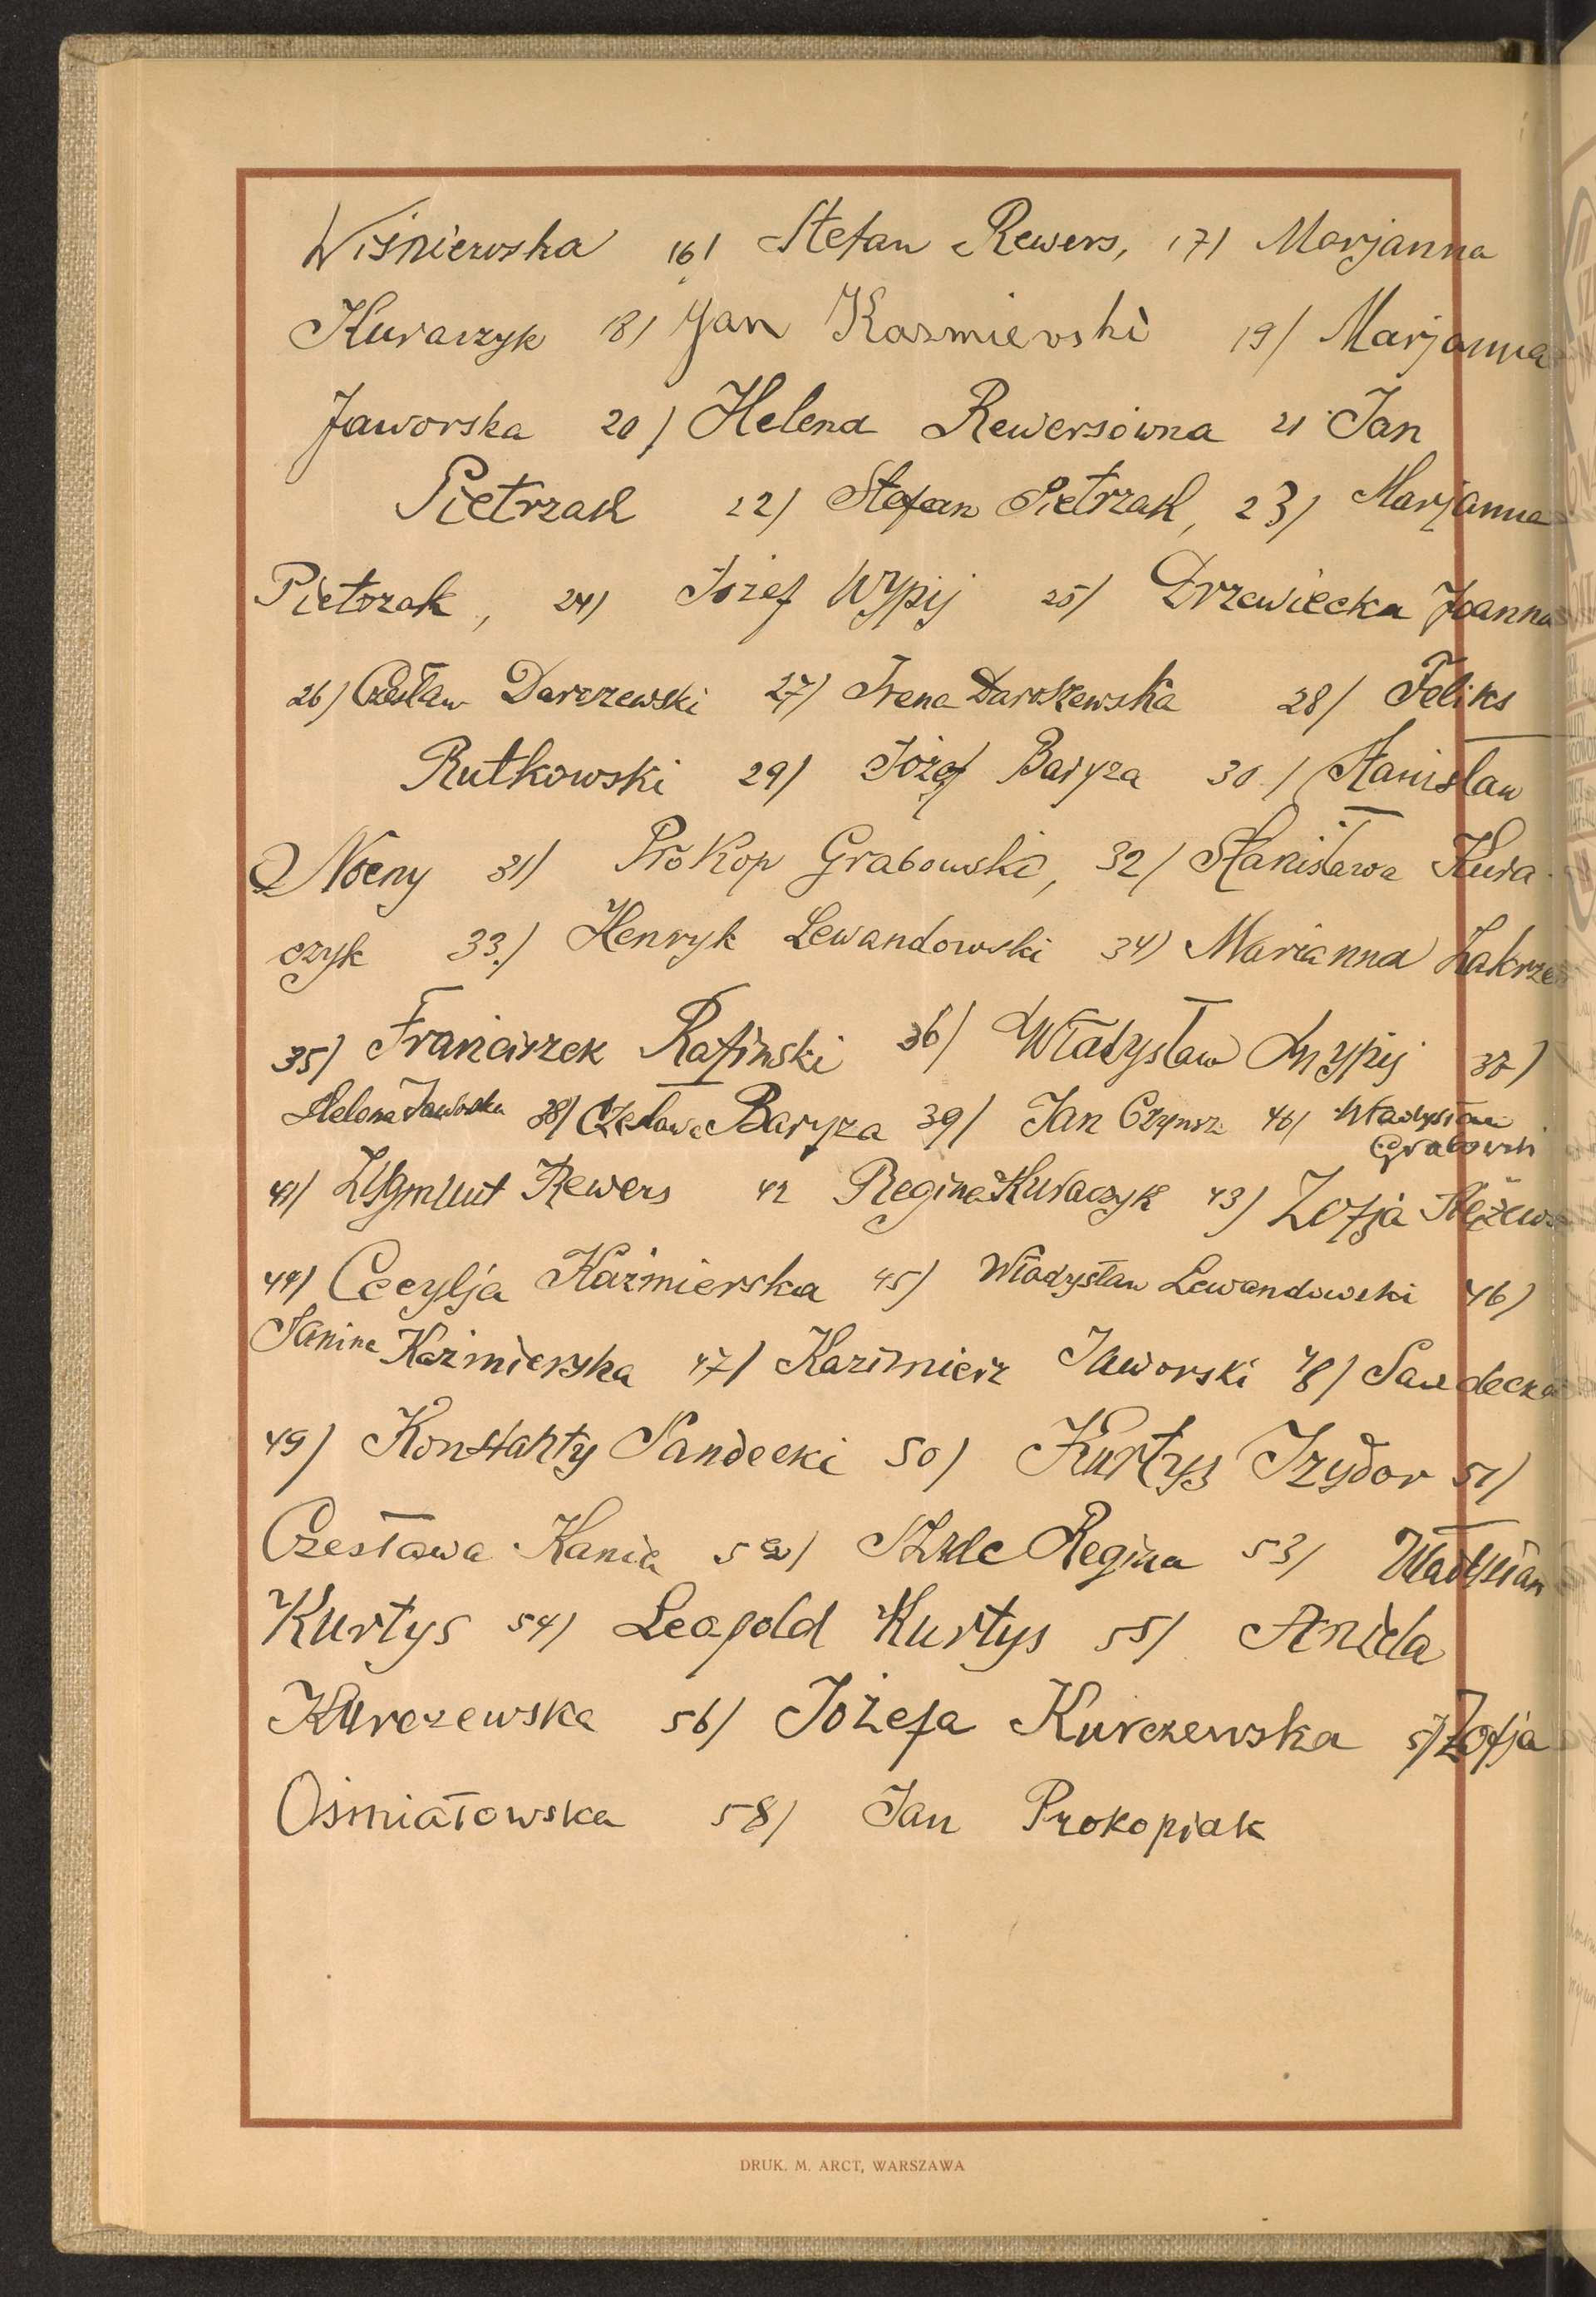 Wiśniewska 16) Stefan Rewers, 17) Marjanna
Kuraczyk 18) Jan Kaźmierski 19) Marjanna
Jaworska 20) Helena Rewersówna 21 Jan
Pietrzak 22) Stefan Pietrzak, 23) Marjanna
Pietrzak, 24) Józef Wypij 25) Drzewiecka Joanna
26) Czesław Darszewski 27) Irena Daroszewska 28) Feliks
Rutkowski 29) Józef Baryza 30.) Stanisław
Nocny 31) Prokop Grabowski, 32) Stanisława Kura-
czyk 33.) Henryk Lewandowski 34) Marianna Zakrze
35) Franciszek Rafiński 36) Władysław Wypij 37)
Helena Jaworska 38) Czesława Baryza 39) Jan 40) Władysław
Grabowski
41) Zygmunt Rewers 42 Regina Kuraczyk 43) Zofja
44) Cecylja Kaźmierska 45) Władysław Lewandowski 46)
Janina Kaźmierska 47) Kazimierz Jaworski 48) Sandecka
49) Konstanty Sandecki 50) Kurtys Izydor 51)
Czesława Kania 52) Regina 53) Władysław
Kurtys 54) Leopold Kurtys 55) Aniela
Kurczewska 56) Józefa Kurczewska 57) Zofja
Ośmiałowska 58) Jan Prokopiak
DRUK. M. ARCT, WARSZAWA